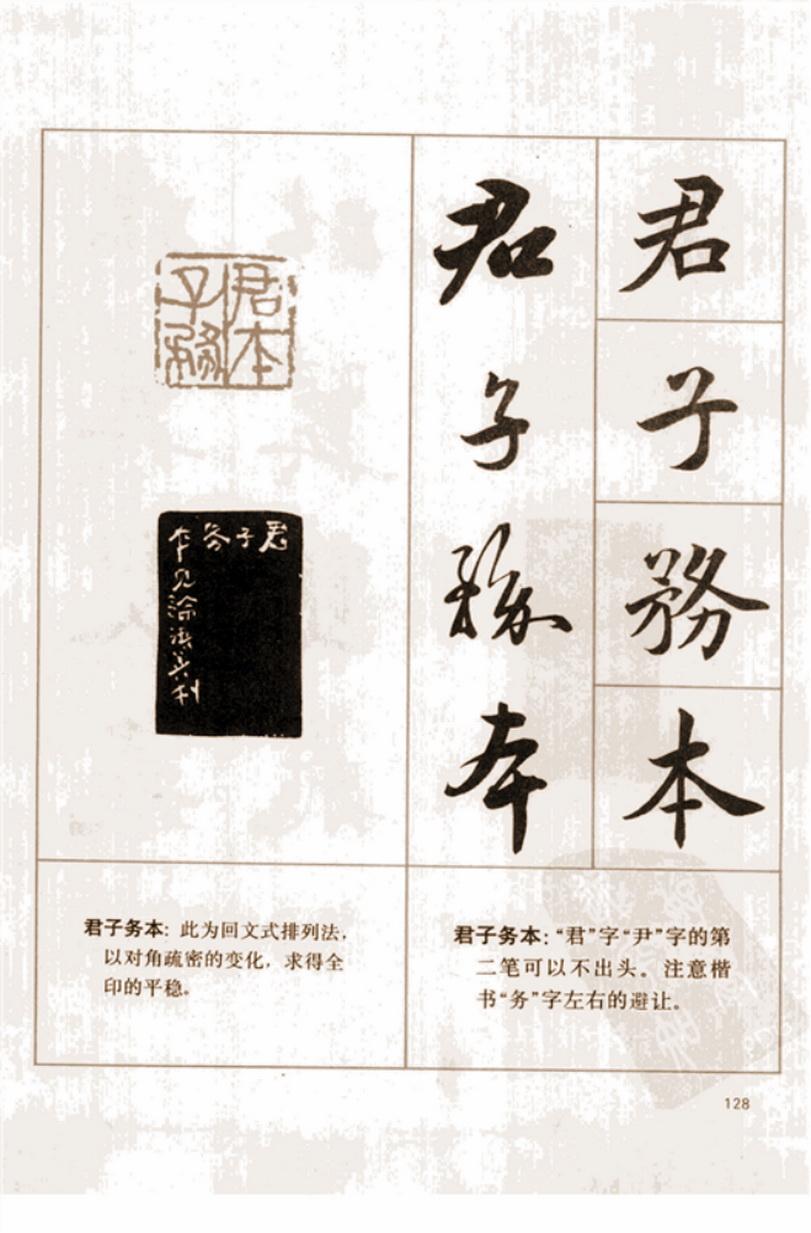 君
子
務
本
君
子
務
本
君子
務本
君子務
本
君子务本：此为回文式排列法，
以对角疏密的变化，求得全
印的平稳。
君子务本：“君”字“尹”字的第
二笔可以不出头。注意楷
书“务”字左右的避让。
128